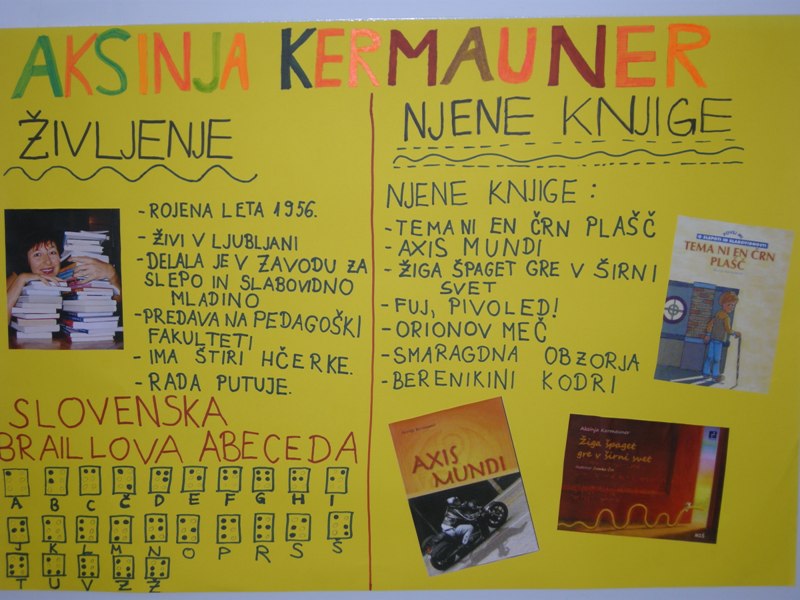 AKSINJA KERMAUNER
ŽIVLJENJE
- ROJENA LETA 1956.
- ŽIVI V LJUBLJANI
- DELALA JE V ZAVODU ZA
SLEPO IN SLABOVIDNO
MLADINO
- PREDAVA NA PEDAGOŠKI
FAKULTETI
- IMA ŠTIRI HČERKE.
- RADA PUTUJE.
SLOVENSKA
BRAILLOVA ABECEDA
A B C Č D E F G H I
J K L M N O P R S Š
T U V Z Ž
NJENE KNJIGE
NJENE KNJIGE:
- TEMA NI EN ČRN PLAŠČ
- AXIS MUNDI
- ŽIGA ŠPAGET GRE V ŠIRNI
SVET
- FUJ, PIVOLED!
- ORIONOV MEČ
- SMARAGDNA OBZORJA
- BERENIKINI KODRI
O SLEPOTI IN SLABOVIDNOSTI
TEMA NI EN ČRN
PLAŠČ
AXIS
MUNDI
Aksinja Kermauner
Žiga špaget
gre v širni svet